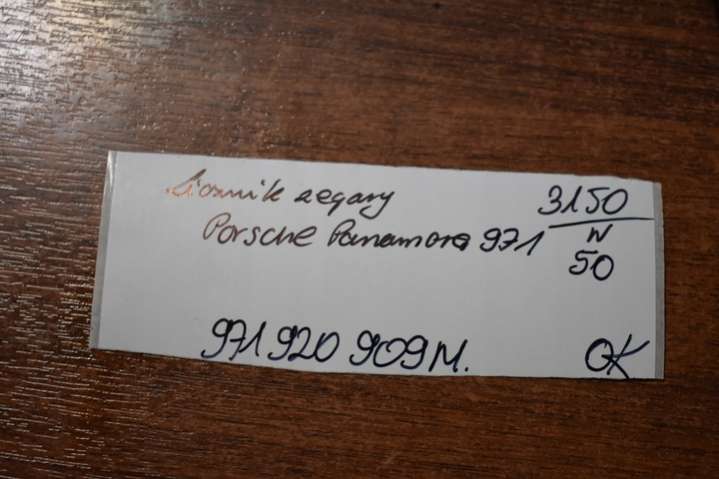 Licznik zegary
Porsche Panamera 971
3150
N
50
971 920 909 M.
OK